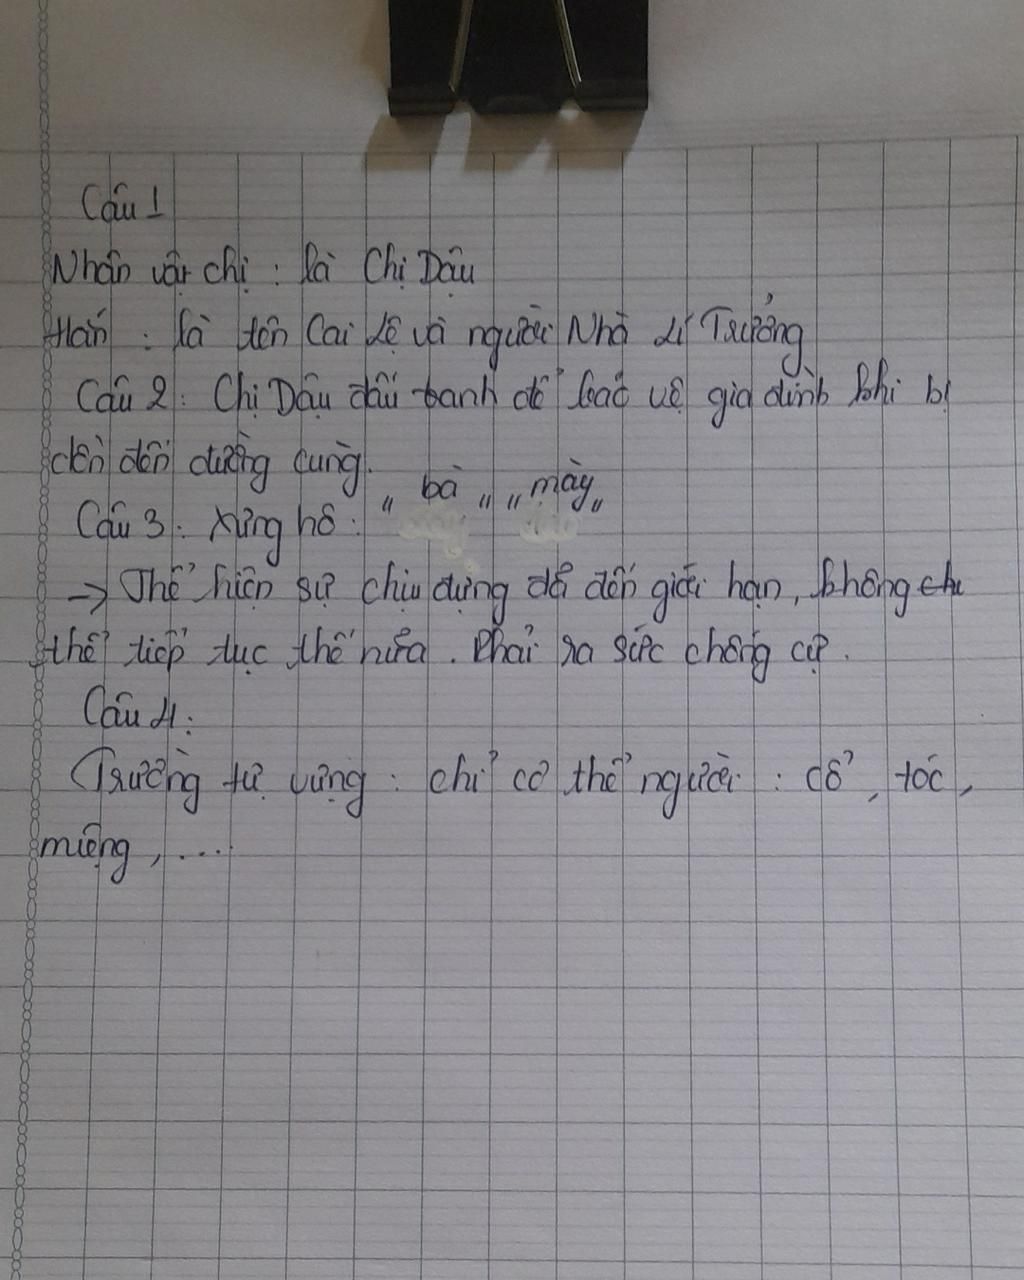 Câu 1
Nhân vật chị : là Chị Dậu
Hắn : là tên Cai Lệ và người Nhà Lí Trưởng
Câu 2 : Chị Dậu đấu tranh để bảo vệ gia đình khi bị
dồn đến đường cùng.
Câu 3 : Xưng hô : "bà" "mày"
→ Thể hiện sự chịu đựng đã đến giới hạn, không
thể tiếp tục thế nữa. Phải ra sức chống cự.
Câu 4 :
Trường từ vựng : chỉ cơ thể người : cổ, tóc,
miệng, ....